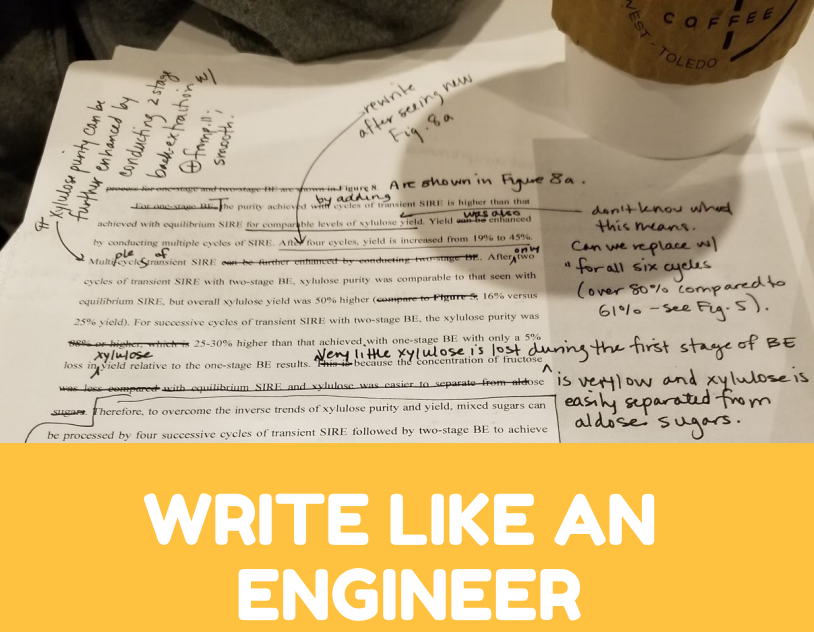 COFFEE
WEST - TOLEDO
¶ Xylulose purity can be
further enhanced by
conducting 2 stage
back-extraction w/
smooth.
rewrite
after seeing new
Fig. 8a
process for one-stage and two-stage BE are shown in Figure 8. Are shown in Figure 8a.
by adding
For one-stage BE, The purity achieved with cycles of transient SIRE is higher than that
was also
achieved with equilibrium SIRE for comparable levels of xylulose yield. Yield can be enhanced
by conducting multiple cycles of SIRE. After four cycles, yield is increased from 19% to 45%.
ple of only
Multi cycles transient SIRE can be further enhanced by conducting two-stage BE. After two
cycles of transient SIRE with two-stage BE, xylulose purity was comparable to that seen with
equilibrium SIRE, but overall xylulose yield was 50% higher (compare to Figure 5, 16% versus
25% yield). For successive cycles of transient SIRE with two-stage BE, the xylulose purity was
88% or higher, which is 25-30% higher than that achieved with one-stage BE with only a 5%
xylulose Very little xylulose is lost during the first stage of BE
loss in yield relative to the one-stage BE results. This is because the concentration of fructose
was less compared with equilibrium SIRE and xylulose was easier to separate from aldose
sugars. Therefore, to overcome the inverse trends of xylulose purity and yield, mixed sugars can
be processed by four successive cycles of transient SIRE followed by two-stage BE to achieve
don't know what
this means.
Can we replace w/
"for all six cycles
(over 80% compared to
61% - see Fig. 5).
is very low and xylulose is
easily separated from
aldose sugars.
WRITE LIKE AN
ENGINEER